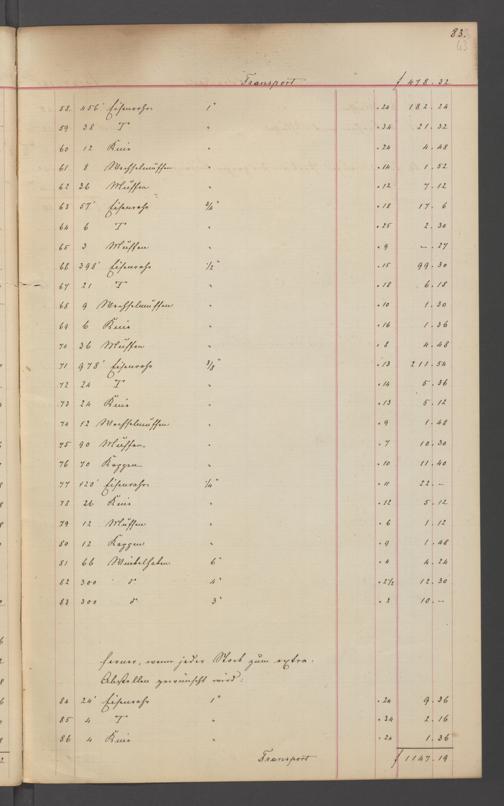 83.
63
Transport f 478.32
58 456' Eisenrohr 1" " 24 182.24
59 38 T " " 34 21.32
60 12 Knie " " 24 4.48
61 8 Wechselmuffen " " 14 1.52
62 36 Muffen " " 12 7.12
63 57' Eisenrohr 3/4" " 18 17.6
64 6 T " " 25 2.30
65 3 Muffen " " 9 –.27
66 398' Eisenrohr 1/2" " 15 99.30
67 21 T " " 18 6.18
68 9 Wechselmuffen " " 10 1.30
69 6 Knie " " 16 1.36
70 36 Muffen " " 8 4.48
71 978' Eisenrohr 3/8" " 13 211.54
72 24 T " " 14 5.36
73 24 Knie " " 13 5.12
74 12 Wechselmuffen " " 9 1.48
75 90 Muffen " " 7 10.30
76 70 Kappen " " 10 11.40
77 120' Eisenrohr 1/4" " 11 22.–
78 26 Knie " " 12 5.12
79 12 Muffen " " 6 1.12
80 12 Kappen " " 9 1.48
81 66 Winkelhaken 6" " 4 4.24
82 300 d° 4" " 2 1/2 12.30
83 300 d° 3" " 2 10.–
Ferner, wenn jeder Stock zum extra
Abstellen gewünscht wird:
84 24' Eisenrohr 1" " 24 9.36
85 4 T " " 34 2.16
86 4 Knie " " 24 1.36
Transport f 1147.19